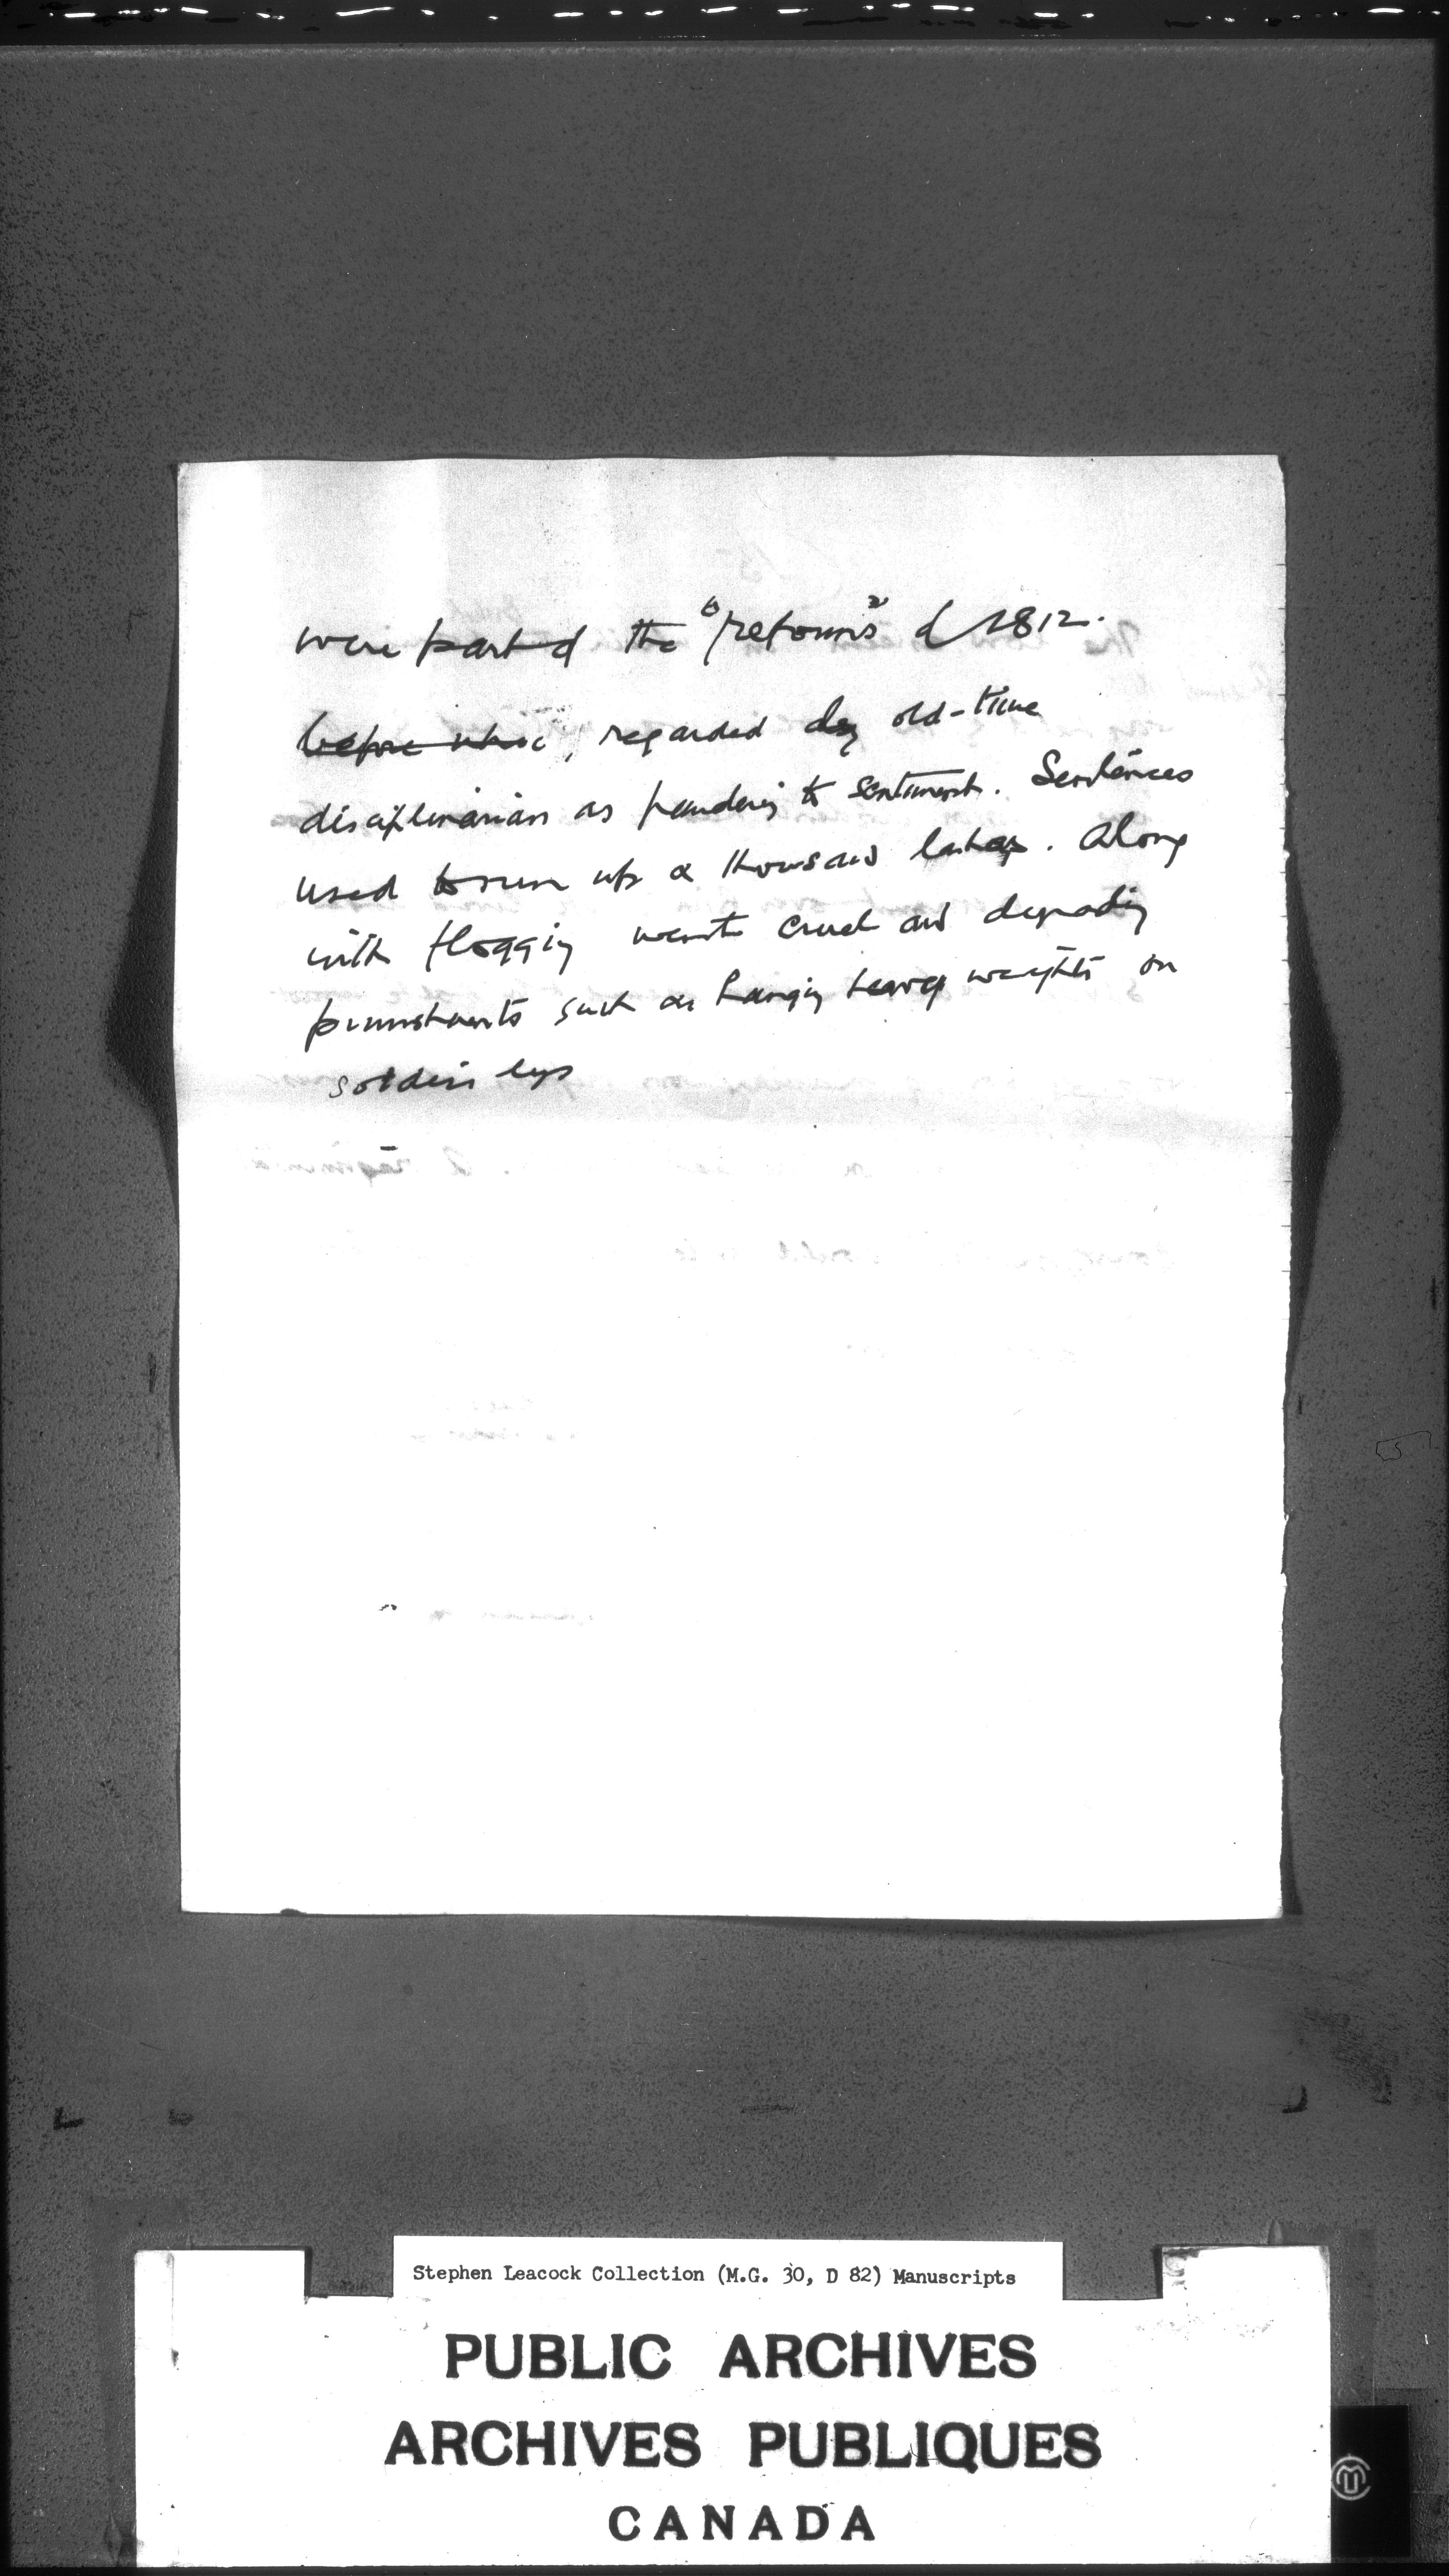 were part of the "reforms" of 1812.
before whic, regarded by old-time
disciplinarian as pandering to sentiment. Sentences
used to run up a thousand lashes. Along
with flogging went cruel and degrading
punishments such as hanging heavy weights on
soldiers legs
Stephen Leacock Collection (M.G. 30, D 82) Manuscripts
PUBLIC ARCHIVES
ARCHIVES PUBLIQUES
CANADA